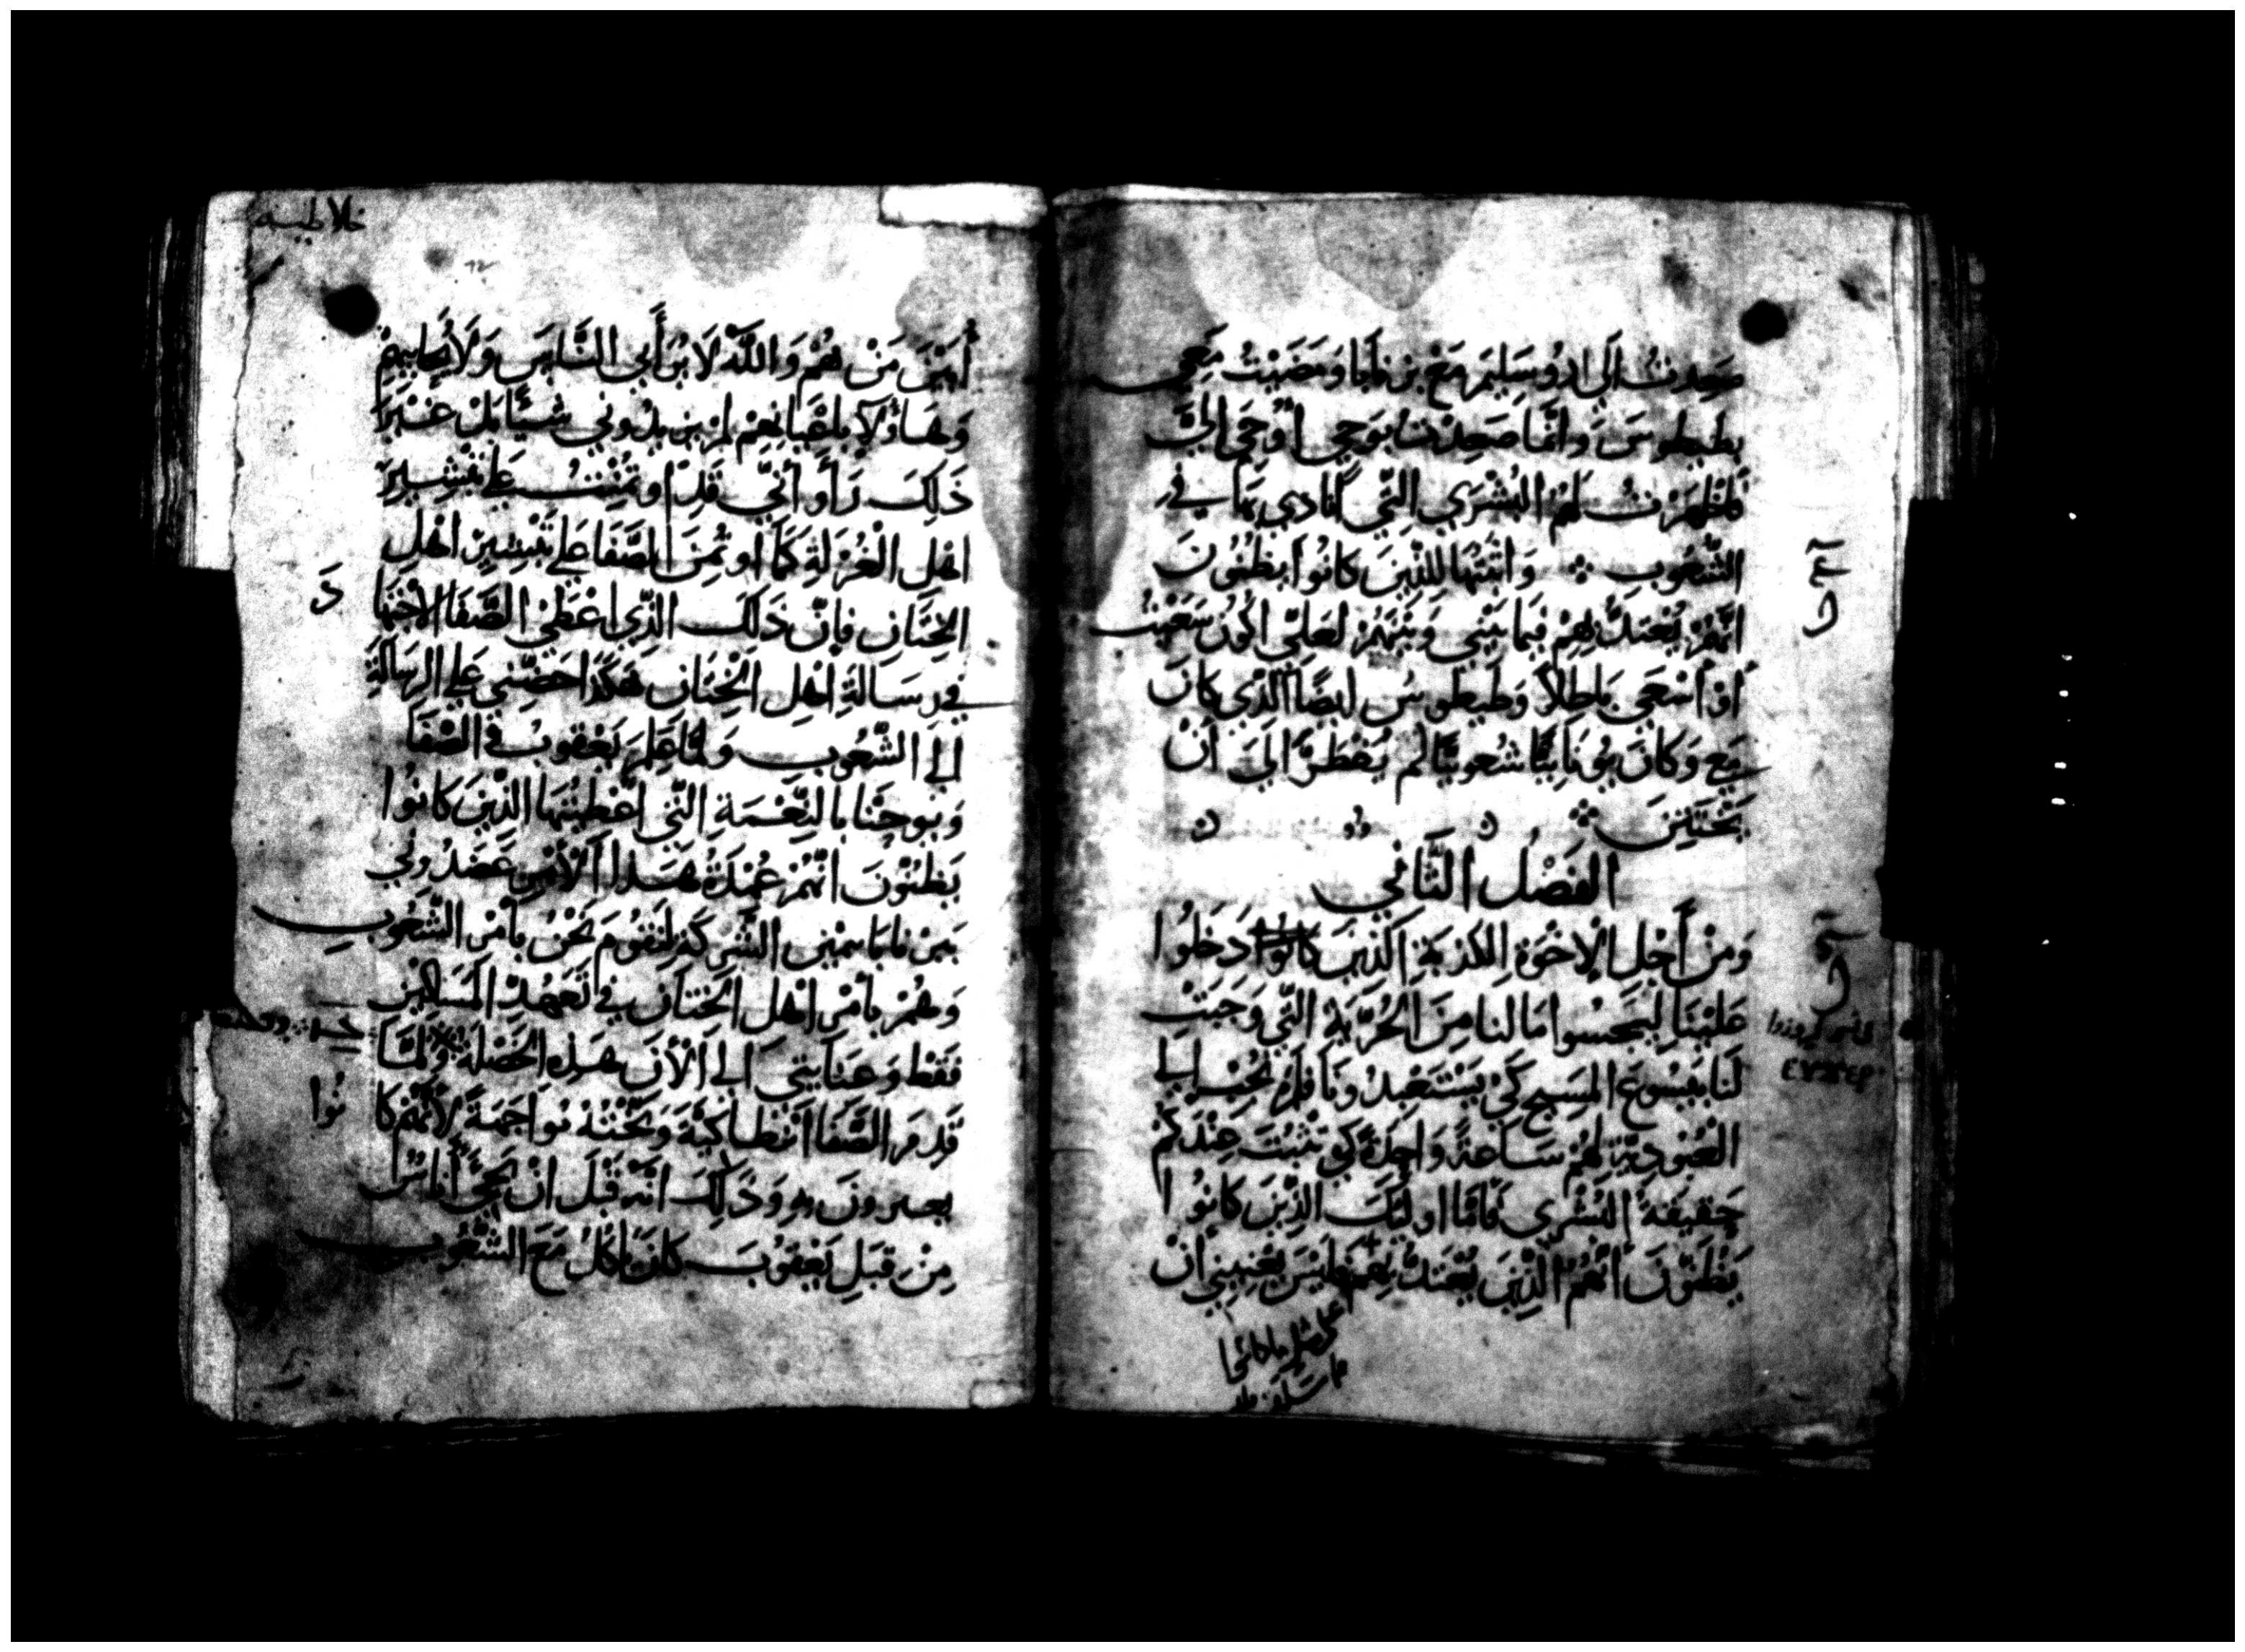 صَعِدتُ الَي اروُسَلِيمَ مَعَ بَرنابَا وَمَضَيْتُ مَعِي
بطيطوسَ وَانَّما صَعِدتُ بوَحيٍ أُوحَي الِيَّ
فاظْهَرتُ لهمُ البُشْرَي التَّي أنادي بهَا في
الشُّعُوبِ وَاثبَتُهَا للذِّينَ كانُوا يظُنُونَ
انَّهُمْ يُعْتَدُّ بِهِمْ فيمَا بَيْني وَبَيْنَهُمْ لعَلّي اكُونُ سَعَيْتُ
أوْ أسْعَي بَاطِلاً وَطيطوسُ ايضًا الذّي كانَ
مَعي وَكانَ يونَانِيًّا شعُوبيًّا لم يُضْطَرَّ الَي انْ
يَختَتِنَ
الفَصْلُ الثَّاني
وَمنْ أجْلِ الإخْوَةِ الكذبَةِ الذّينَ كانُوا دَخلُوا
عَليْنَا ليَجسُوا مَا لنا منَ الحُرِّيَةِ التّي وَجَبَتْ
لنَا بيَسُوعَ المَسيحِ كَيْ يَسْتَعْبدُونَا فلم نُجبْ الي
العُبُوديَّةِ لهُمْ سَاعةً وَاحِدَةً كي تثبُتَ عِنْدَكمْ
حَقيقَةُ البُشْرَي فَامَّا اولئكَ الذّينَ كانُوا
يَظنّونَ انَّهُمُ الذّينَ يُعْتَدُّ بِهِمْ فليْسَ يَعْنيني انْ
غلاطيه
أبَيّنَ مَنْ هُمْ وَاللَّه لاَ يُرَأّي النَّاسَ وَلاَ يُحابيهِمْ
وَهَاؤلاَءِ باعْيَانِهِمْ لمْ يزيدُوني شيْئًا بَلْ غيْرَ
ذَلِكَ رَأوا أنّي قَدِ اوتُمِنْتُ عَلي تبْشيرِ
اهْلِ الْغُرْلةِ كَمَا اوتُمِنَ الصَّفَا عَلي تَبْشيرِ اهْلِ
الخِتَانِ فإنّ ذَلكَ الذّي اعْطَي الصَّفَا الاجْتهَا
دَ
في رسَالةِ اهْلِ الخِتَانِ هَكذَا حَضّني عَلي الرسَالةِ
الي الشّعُوبِ وَلمَّا عَلِمَ يَعْقوبُ وَالصّفَا
وَيوحَنّا بالنِّعْمَةِ التّي اعْطيتُهَا الذّينَ كانُوا
يَظنّوْنَ انّهُمْ عُمْدَةُ هَذا الأمْرِ عَضَدُوني
وَبَرنابَا بيمين الشّركةِ لنَقومَ نَحْنُ بأمْرِ الشّعُوبِ
وَهُمْ بأمْرِ اهْل الخِتَانِ في تَعَهّدِ المَسَاكين
فقَطْ وَعنايَتي الي الآنَ بهَذِهِ الخَصْلةِ وَلمَّا
قَدِمَ الصَّفَا انْطاكيَةَ وَبَّخْتُهُ مُواجَهةً لأنَّهُمْ كا
نُوا
يعثرونَ بهِ وَذَلِكَ انّهُ قبْلَ انْ يَجيَّ أناسٌ
مِنْ قِبَلِ يَعْقوُبَ كانَ يأكلُ مَعَ الشّعُوبِ